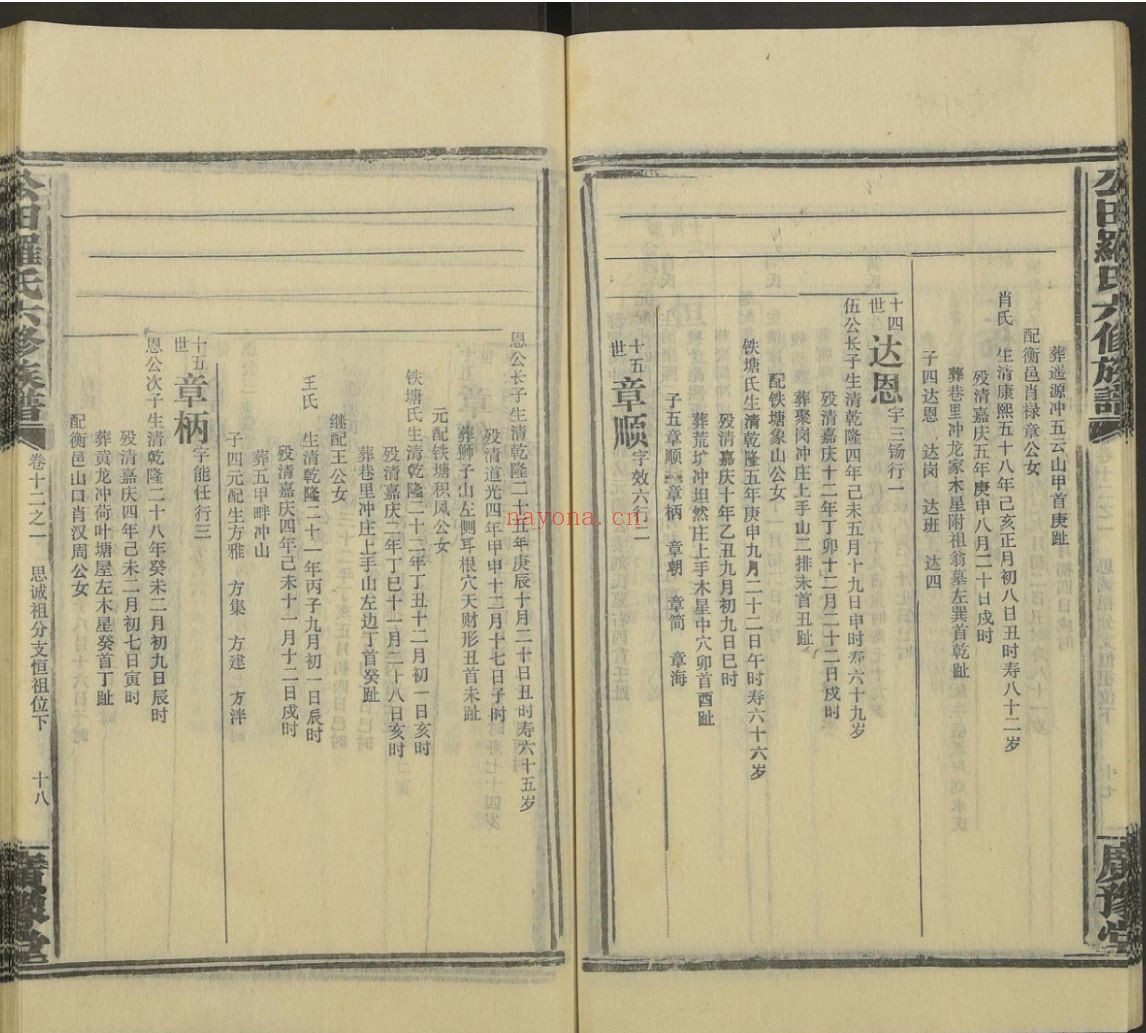 公田羅氏六修族譜
廣豫堂
葬遥源冲五云山甲首庚趾
配衡邑肖禄章公女
肖氏 生清康熙五十八年己亥正月初八日丑时寿八十二岁
殁清嘉庆五年庚申八月二十日戌时
葬巷里冲龙家木星附祖翁墓左巽首乾趾
子四达恩 达岗 达班 达四
十四世 达恩 字三钖行一
伍公长子生清乾隆四年己未五月十九日申时寿六十九岁
殁清嘉庆十二年丁卯十二月二十二日戌时
葬聚岗冲庄上手山二排未首丑趾
配铁塘象山公女
铁塘氏生清乾隆五年庚申九月二十二日午时寿六十六岁
殁清嘉庆十年乙丑九月初九日巳时
葬荒圹冲坦然庄上手木星中穴卯首酉趾
子五章顺 章柄 章朝 章简 章海
十五世 章顺 字效六行二
恩公长子生清乾隆二十五年庚辰十月二十日丑时寿六十五岁
殁清道光四年甲申十二月十七日子时
葬狮子山左侧耳根穴天财形丑首未趾
元配铁塘积风公女
铁塘氏生清乾隆二十二年丁丑十二月初一日亥时
殁清嘉庆二年丁巳十一月二十八日亥时
葬巷里冲庄上手山左边丁首癸趾
继配王公女
王氏 生清乾隆二十一年丙子九月初一日辰时
殁清嘉庆四年己未十一月十二日戌时
葬五甲畔冲山
子四元配生方雅 方集 方建 方泮
十五世 章柄 字能任行三
恩公次子生清乾隆二十八年癸未二月初九日辰时
殁清嘉庆四年己未二月初七日寅时
葬贡龙冲荷叶塘屋左木星癸首丁趾
配衡邑山口肖汉周公女
公田羅氏六修族譜 卷十二之一 思诚祖分支恒祖位下 十八
廣豫堂
nayona.cn